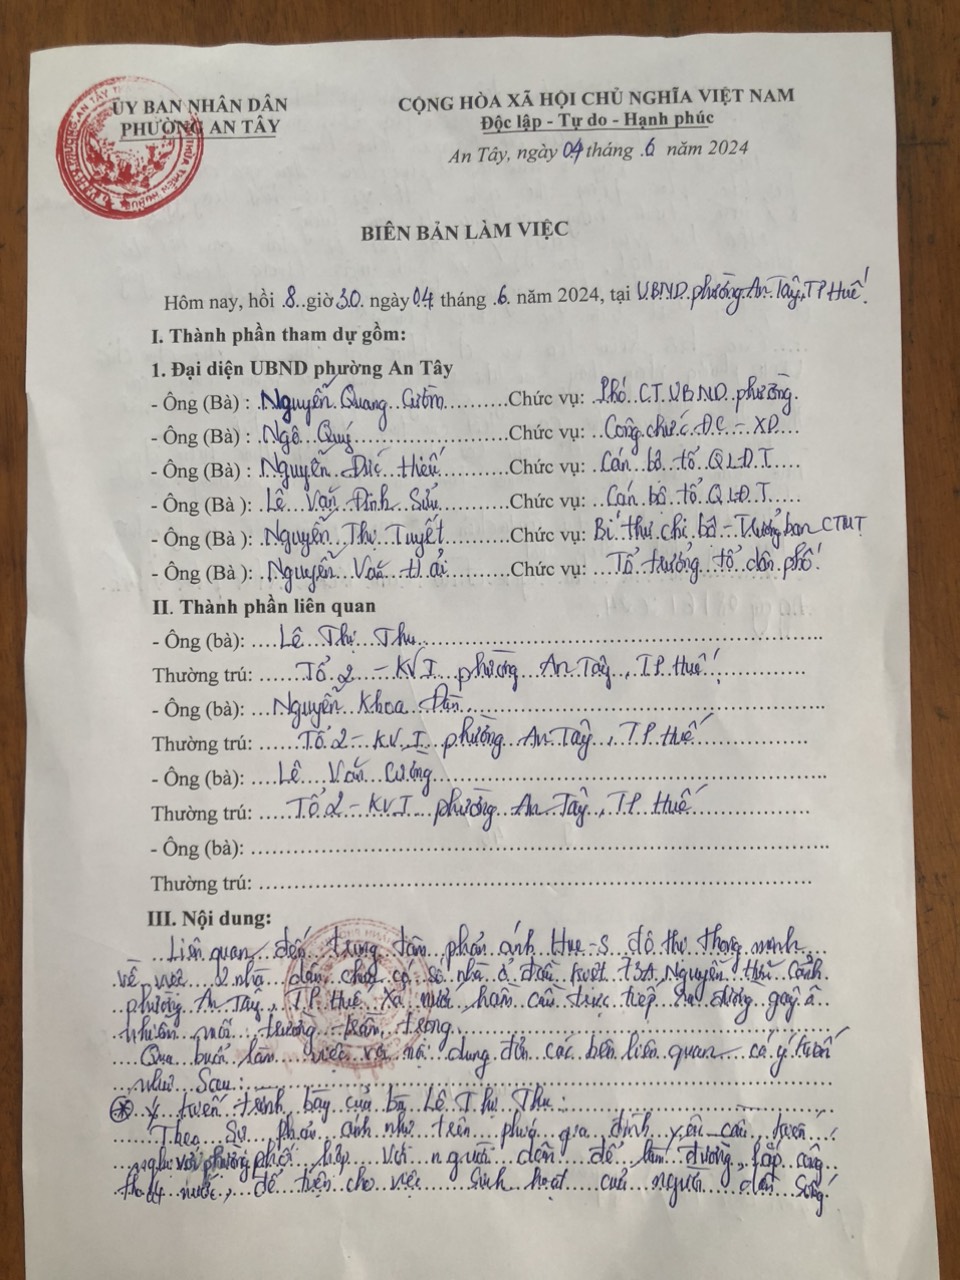 ỦY BAN NHÂN DÂN
PHƯỜNG AN TÂY
CỘNG HÒA XÃ HỘI CHỦ NGHĨA VIỆT NAM
Độc lập - Tự do - Hạnh phúc
An Tây, ngày 04 tháng .6 năm 2024
BIÊN BẢN LÀM VIỆC
Hôm nay, hồi .8. giờ 30. ngày 04 tháng .6. năm 2024, tại UBND phường An Tây, TP Huế
I. Thành phần tham dự gồm:
1. Đại diện UBND phường An Tây
- Ông (Bà) : Nguyễn Quang Chức vụ: Phó CT UBND phường
- Ông (Bà) : Ngô Quý Chức vụ: Công chức ĐC - XD
- Ông (Bà) : Nguyễn Đức Hiếu Chức vụ: Cán bộ tổ QLĐT
- Ông (Bà ): Lê Văn Đình Sửu Chức vụ: Cán bộ tổ QLĐT
- Ông (Bà ): Nguyễn Thị Tuyết Chức vụ: Bí thư chi bộ - Trưởng ban CTMT
- Ông (Bà ): Nguyễn Văn Hải Chức vụ: Tổ trưởng tổ dân phố
II. Thành phần liên quan
- Ông (bà): Lê Thị Thu
Thường trú: Tổ 2 - KV I phường An Tây, TP Huế
- Ông (bà): Nguyễn Khoa
Thường trú: Tổ 2 - KV I phường An Tây, TP Huế
- Ông (bà): Lê Văn Cường
Thường trú: Tổ 2 - KV I phường An Tây, TP Huế
- Ông (bà):
Thường trú:
III. Nội dung:
Liên quan đến trung tâm phản ánh Hue-S đô thị thông minh
về việc 2 nhà dân có số nhà ở kiệt 73A Nguyễn
phường An Tây, TP Huế Xả nước trực tiếp ra đường gây ô
nhiễm môi trường trầm trọng
Qua buổi làm việc với nội dung các bên liên quan có ý kiến
như Sau:
ý kiến trình bày của bà Lê Thị Thu:
Theo Sự phản ánh như trên phía gia đình yêu cầu, kiến
nghị với phường phối hợp với người dân để làm đường, lắp cống
thoát nước, để tiện cho việc Sinh hoạt của người dân Sống